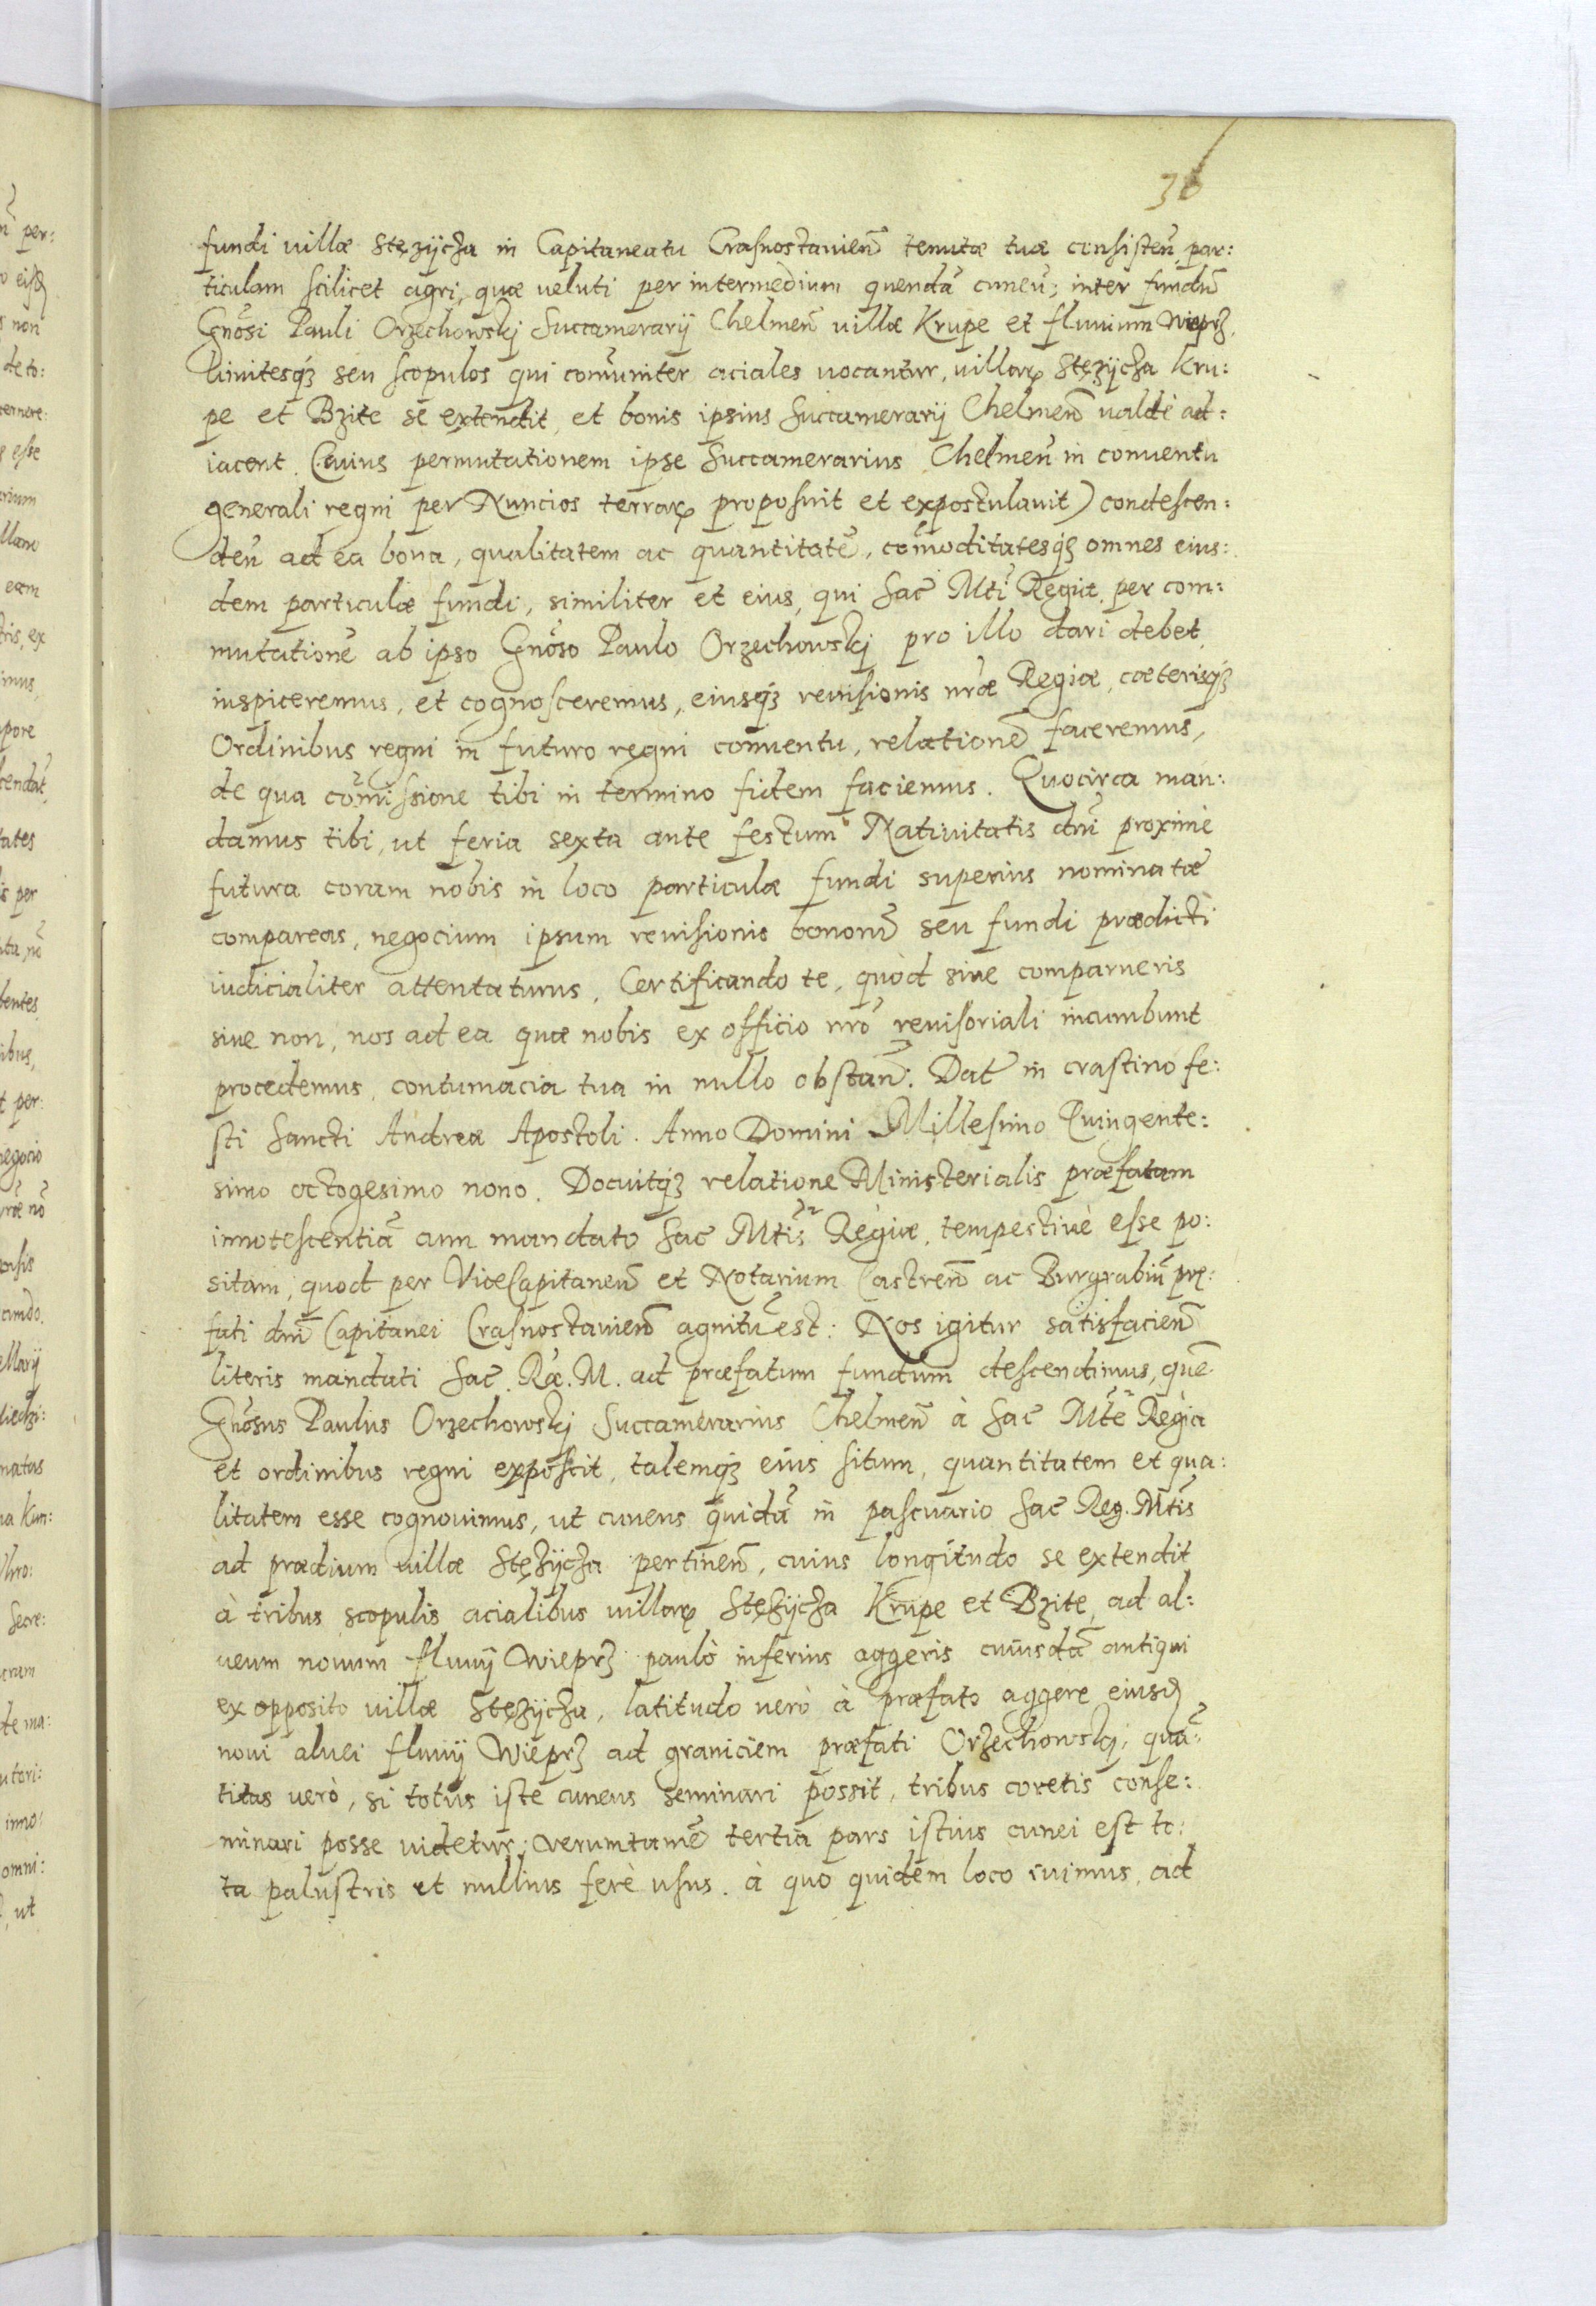 36
fundi uillæ Stęzijcza in Capitaneatu Crasnostauien̄ tenutæ tuæ consisten̄, par:
ticulam scilicet agri, quæ ueluti per intermedium quendā cuneū, inter fundū
Gnōsi Pauli Orzechowskj Succamerarij Chelmen̄ uillæ Krupe et fluuium Wieprz,
limitesqz seu scopulos qui com̄uniter aciales uocantur, uillarꝝ Stęzijcza Kru:
pe et Bzite se extendit, et bonis ipsius Succamerarij Chelmen̄ ualdè ad:
iacent. (Cuius permutationem ipse Succamerarius Chelmen̄ in conuentu
generali regni per Nuncios terrarꝝ proposuit et expostulauit) condescen:
den̄ ad ea bona, qualitatem ac quantitatē, com̄oditatesqz omnes eius:
dem particulæ fundi, similiter et eius, qui Sac̄ Mti Regiæ, per com:
mutationē ab ipso Gnōso Paulo Orzechowskj pro illo dari debet,
inspiceremus, et cognosceremus, eiusqz reuisionis nr̄æ Regiæ, cæterisqz
Ordinibus regni in futuro regni conuentu, relationē faceremus,
de qua com̄issione tibi in termino fidem faciemus. Quocirca man:
damus tibi, ut feria sexta ante festum Natiuitatis dn̄i proximè
futura coram nobis in loco particulæ fundi superius nominatæ
compareas, negocium ipsum reuisionis bonorū seu fundi prædicti
iudicialiter attentaturus, Certificando te, quòd siue comparueris
siue non, nos ad ea quæ nobis ex officio nr̄o reuisoriali incumbunt
procedemus, contumacia tua in nullo obstan̄. Dat̄ in crastino fe:
sti Sancti Andreæ Apostoli. Anno Domini Millesimo Quingente:
simo octogesimo nono. Docuitqz relatione Ministerialis præfatam
innotescentiā cum mandato Sac̄ Mtis Regiæ, tempestiuè esse po:
sitam, quod per ViceCapitaneū et Notarium Castren̄ ac Burgrabiū prę:
fati dn̄i Capitanei Crasnostauien̄ agnitū est: Nos igitur satisfacien̄
literis mandati Sac̄. Ræ. M. ad præfatum fundum descendimus, quē
Gnōsus Paulus Orzechowskj Succamerarius Chelmen̄ à Sac̄ Mte Regia
et ordinibus regni exposcit, talemqz eius situm, quantitatem et qua:
litatem esse cognouimus, ut cuneus quidā in pascuario Sac̄ Reg. Mtis
ad prædium uillæ Stęzijcza pertinen̄, cuius longitudo se extendit
à tribus scopulis acialibus uillarꝝ Stęzijcza Krupe et Bzite, ad al:
ueum nouum fluuij Wieprz paulò inferius aggeris cuiusdā antiqui
ex opposito uillæ Stęzijcza, latitudo uerò à præfato aggere eiusd
noui aluei fluuij Wieprz ad graniciem præfati Orzechowskj, quā:
titas uerò, si totus iste cuneus seminari possit, tribus coretis conse:
minari posse uidetur, uerumtamē tertia pars istius cunei est to:
ta palustris et nullius ferè usus. à quo quidem loco iuimus, ad